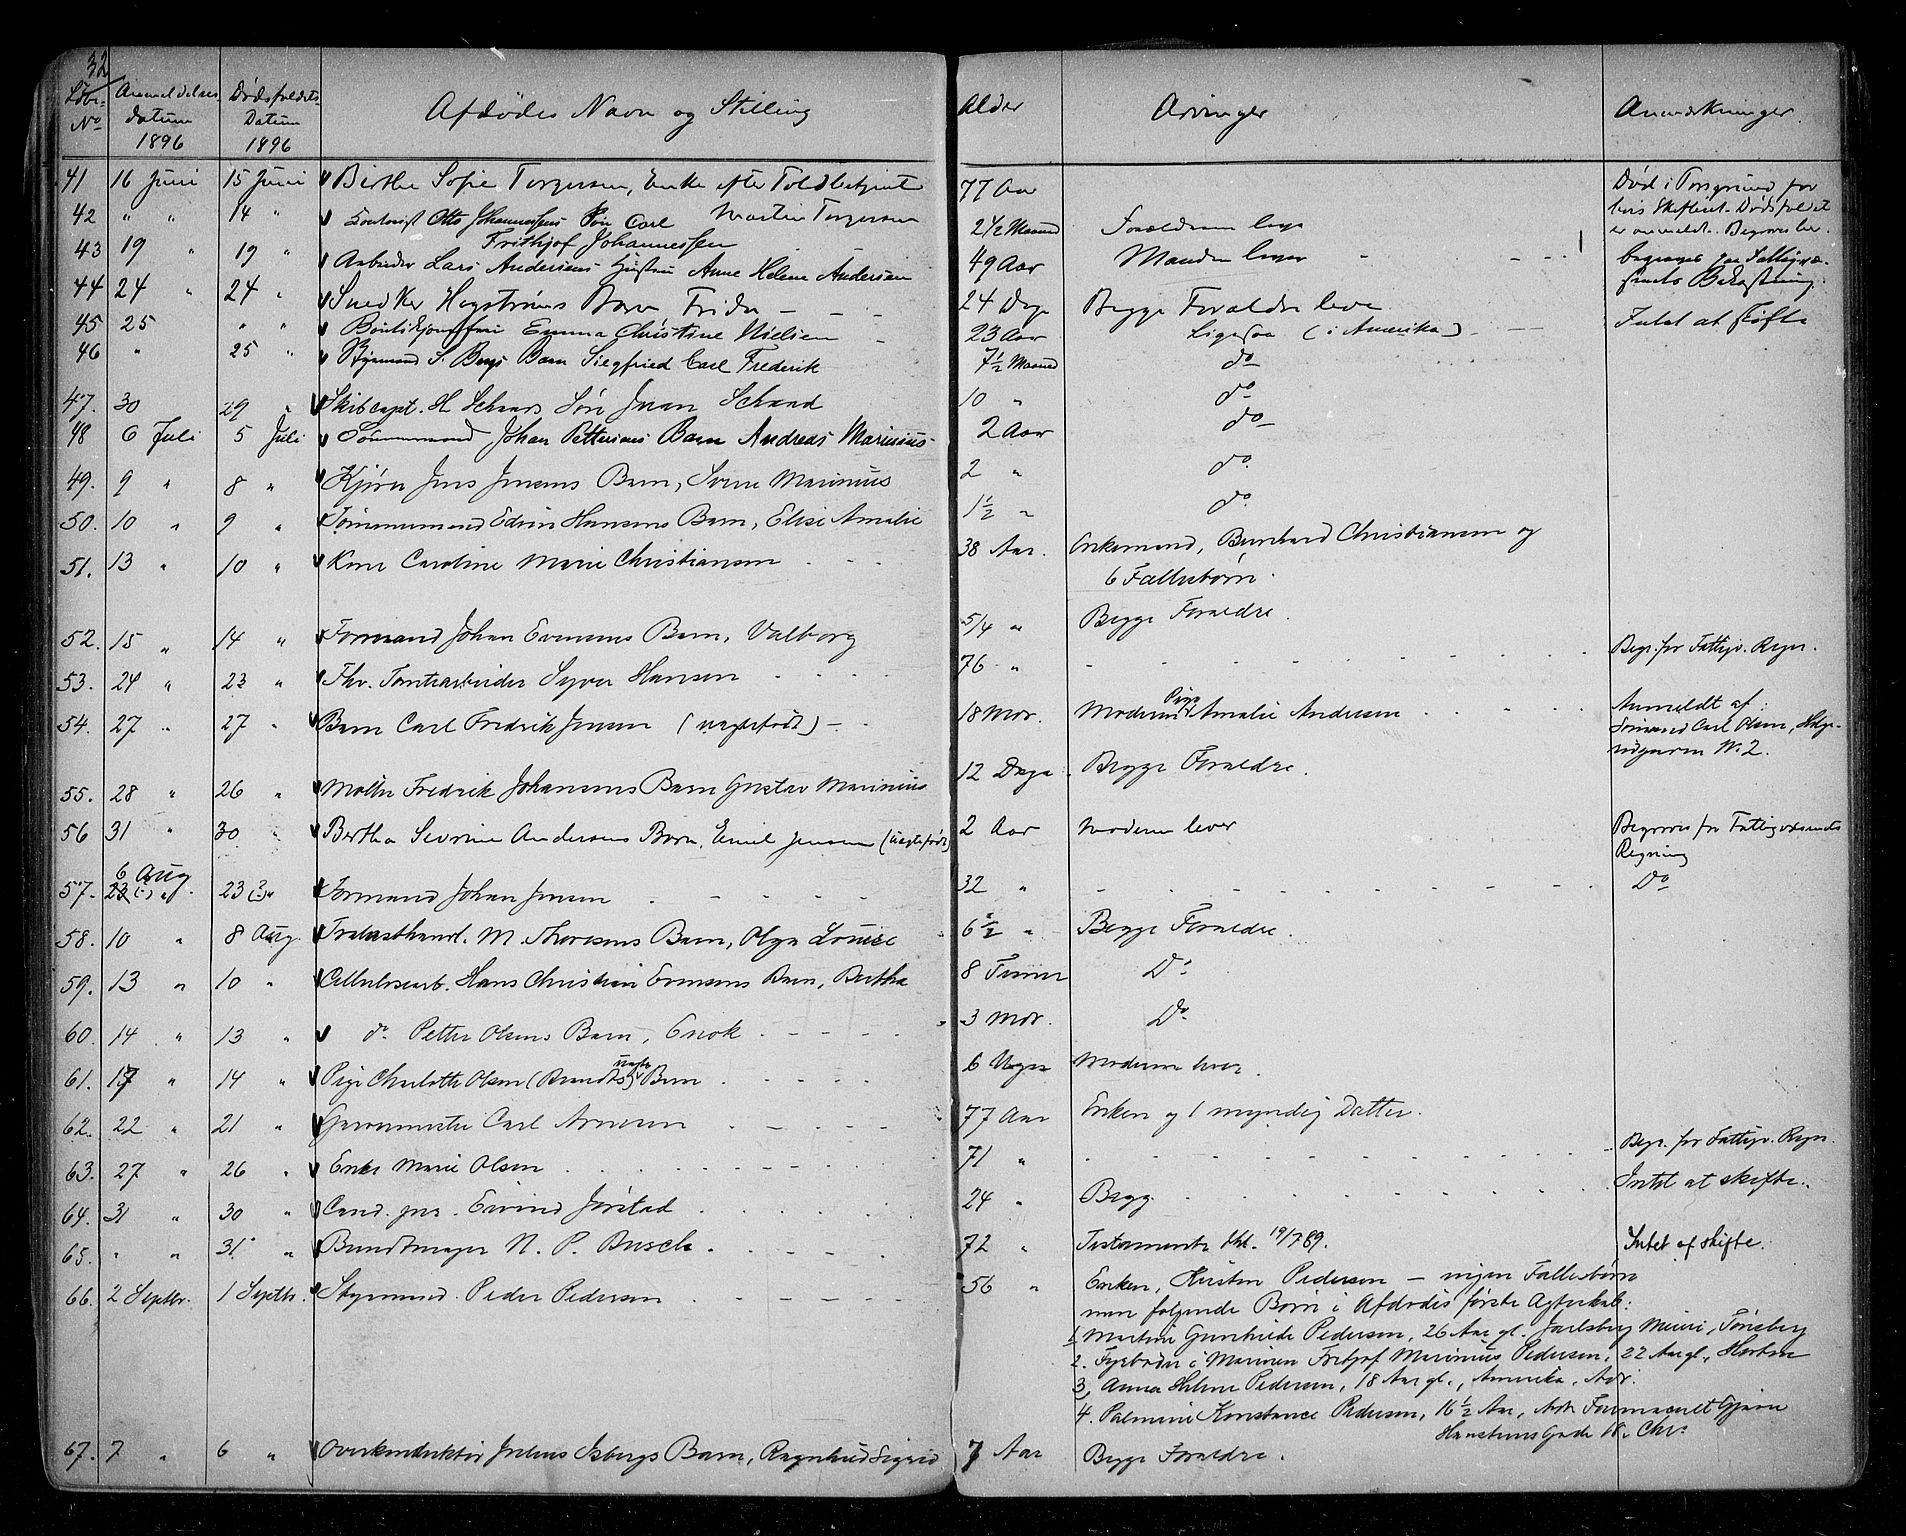 32
Løbe- Anmeldelses Dødsfaldets Afdødes Navn og Stilling Alder Arvinger Anmærkninger.
No datum Datum
1896 1896
41 16 Juni 15 Juni Birthe Sofie Torgersen, Enke efter Toldbetjent 77 Aar Død i Porsgrund, for
Martin Torgersen
42 " " 14 " Kontorist Otto Johannesens Søn Carl 2 1/2 Maaned Forældrene leve
Frithjof Johannessen
er anmeldt. Begraves her.
43 19 " 19 " Arbeider Lars Andersens Hustru Anne Helene Andersen 49 Aar Manden lever begraves paa Fattigvæ-
senets Bekostning.
44 24 " 24 " Snedker Hogstrøms Barn Frida 24 Dage Begge Forældre leve
45 25 " " Butikjomfru Emma Christine Nielsen 23 Aar Ligesaa (i Amerika) Intet at skifte
46 " 25 " Styrmand S. Bergs Barn Siegfried Carl Frederik 7 1/2 Maaned do
47. 30 29 " Skibcapt. H Schaads Søn Juan Schaad 10 " do
48 6 Juli 5 Juli Tømmermand Johan Pettersens Barn Andreas Marinius 2 Aar do
49. 9 " 8 " Kjører Jens Jensens Barn, Sverre Marinius 2 " do.
50. 10 " 9 " Tømmermand Edvin Hansens Barn, Elise Amalie 1 1/2 " do.
51. 13 " 10 " Kone Caroline Marie Christiansen 38 Aar. Enkemand, Bernhard Christiansen og
6 Fællesbørn.
52. 15 " 14 " Formand Johan Evensens Barn, Valborg 5/4 " Begge Forældre.
53. 24 " 23 " Fhv. Tomtearbeider Syver Hansen 76 " Begr. for Fattigv. Regn.
54. 27 " 27 " Barn Carl Fredrik Jensen (uægtefødt) 18 Mdr. Moderen Pige Amalie Andersen Anmeldt af:
Sømand Carl Olsen,
No. 2.
55. 28 " 26 " Fredrik Johansens Barn Gustav Marinius 12 Dage Begge Forældre.
56 31 " 30 " Bertha Sevrine Andersens Barn, Emil Jensen (uægtefødt) 2 Aar Moderen lever Begraves for Fattigvæsenets
Regning
6 Aug
57. 23 (?) " 23 (?) " Formand Johan Jensen 32 " Do
58. 10 " 8 Aug. Trælasthandl. M. Thoresens Barn, Olga Louise 6 1/2 " Begge Forældre.
59. 13 " 10 " Cellulosearb. Hans Christian Evensens Barn, Bertha 8 Timer Do
60. 14 " 13 " do Petter Olsens Barn, Enok 3 Mdr. Do.
61. 17 " 14 " Pige Charlotte Olsen (Brandts) uægte Barn 6 Uger Moderen lever.
62. 22 " 21 " Garvermester Carl Arnesen 77 Aar Enken og 1 myndig Datter.
63. 27 " 26 " Enke Marie Olsen 71 " Begr. for Fattigv. Regn.
64. 31 " 30 " Cand. jur. Eivind Jørstad 24 " Begg. Intet at skifte.
65. " " 31 " Bundtmager N. P. Busch 72 " Testamente dat. 19/7 89. Intet at skifte.
66. 2 Septbr. 1 Septbr. Styrmand Peder Pedersen 56 " Enken, Kirsten Pedersen – ingen Fællesbørn
men følgende Børn i Afdødes første Ægteskab:
1. Martine Gunhilde Pedersen, 26 Aar gl. Jarlsberg Meieri, Tønsberg
2. Fyrbøder i Marinen Fritjof Marinius Pedersen, 22 Aar gl., Horten
3, Anna Helene Pedersen, 18 Aar gl., Amerika, Adr.
4. Palmine Konstance Pedersen, 16 1/2 Aar, Adr. Farmaceut Gjøen
Hansteens Gade 18. Chr.
67. 7 " 6 " Overkonduktør Julius Isbergs Barn, Ragnhild Sigrid 7 Aar Begge Forældre.